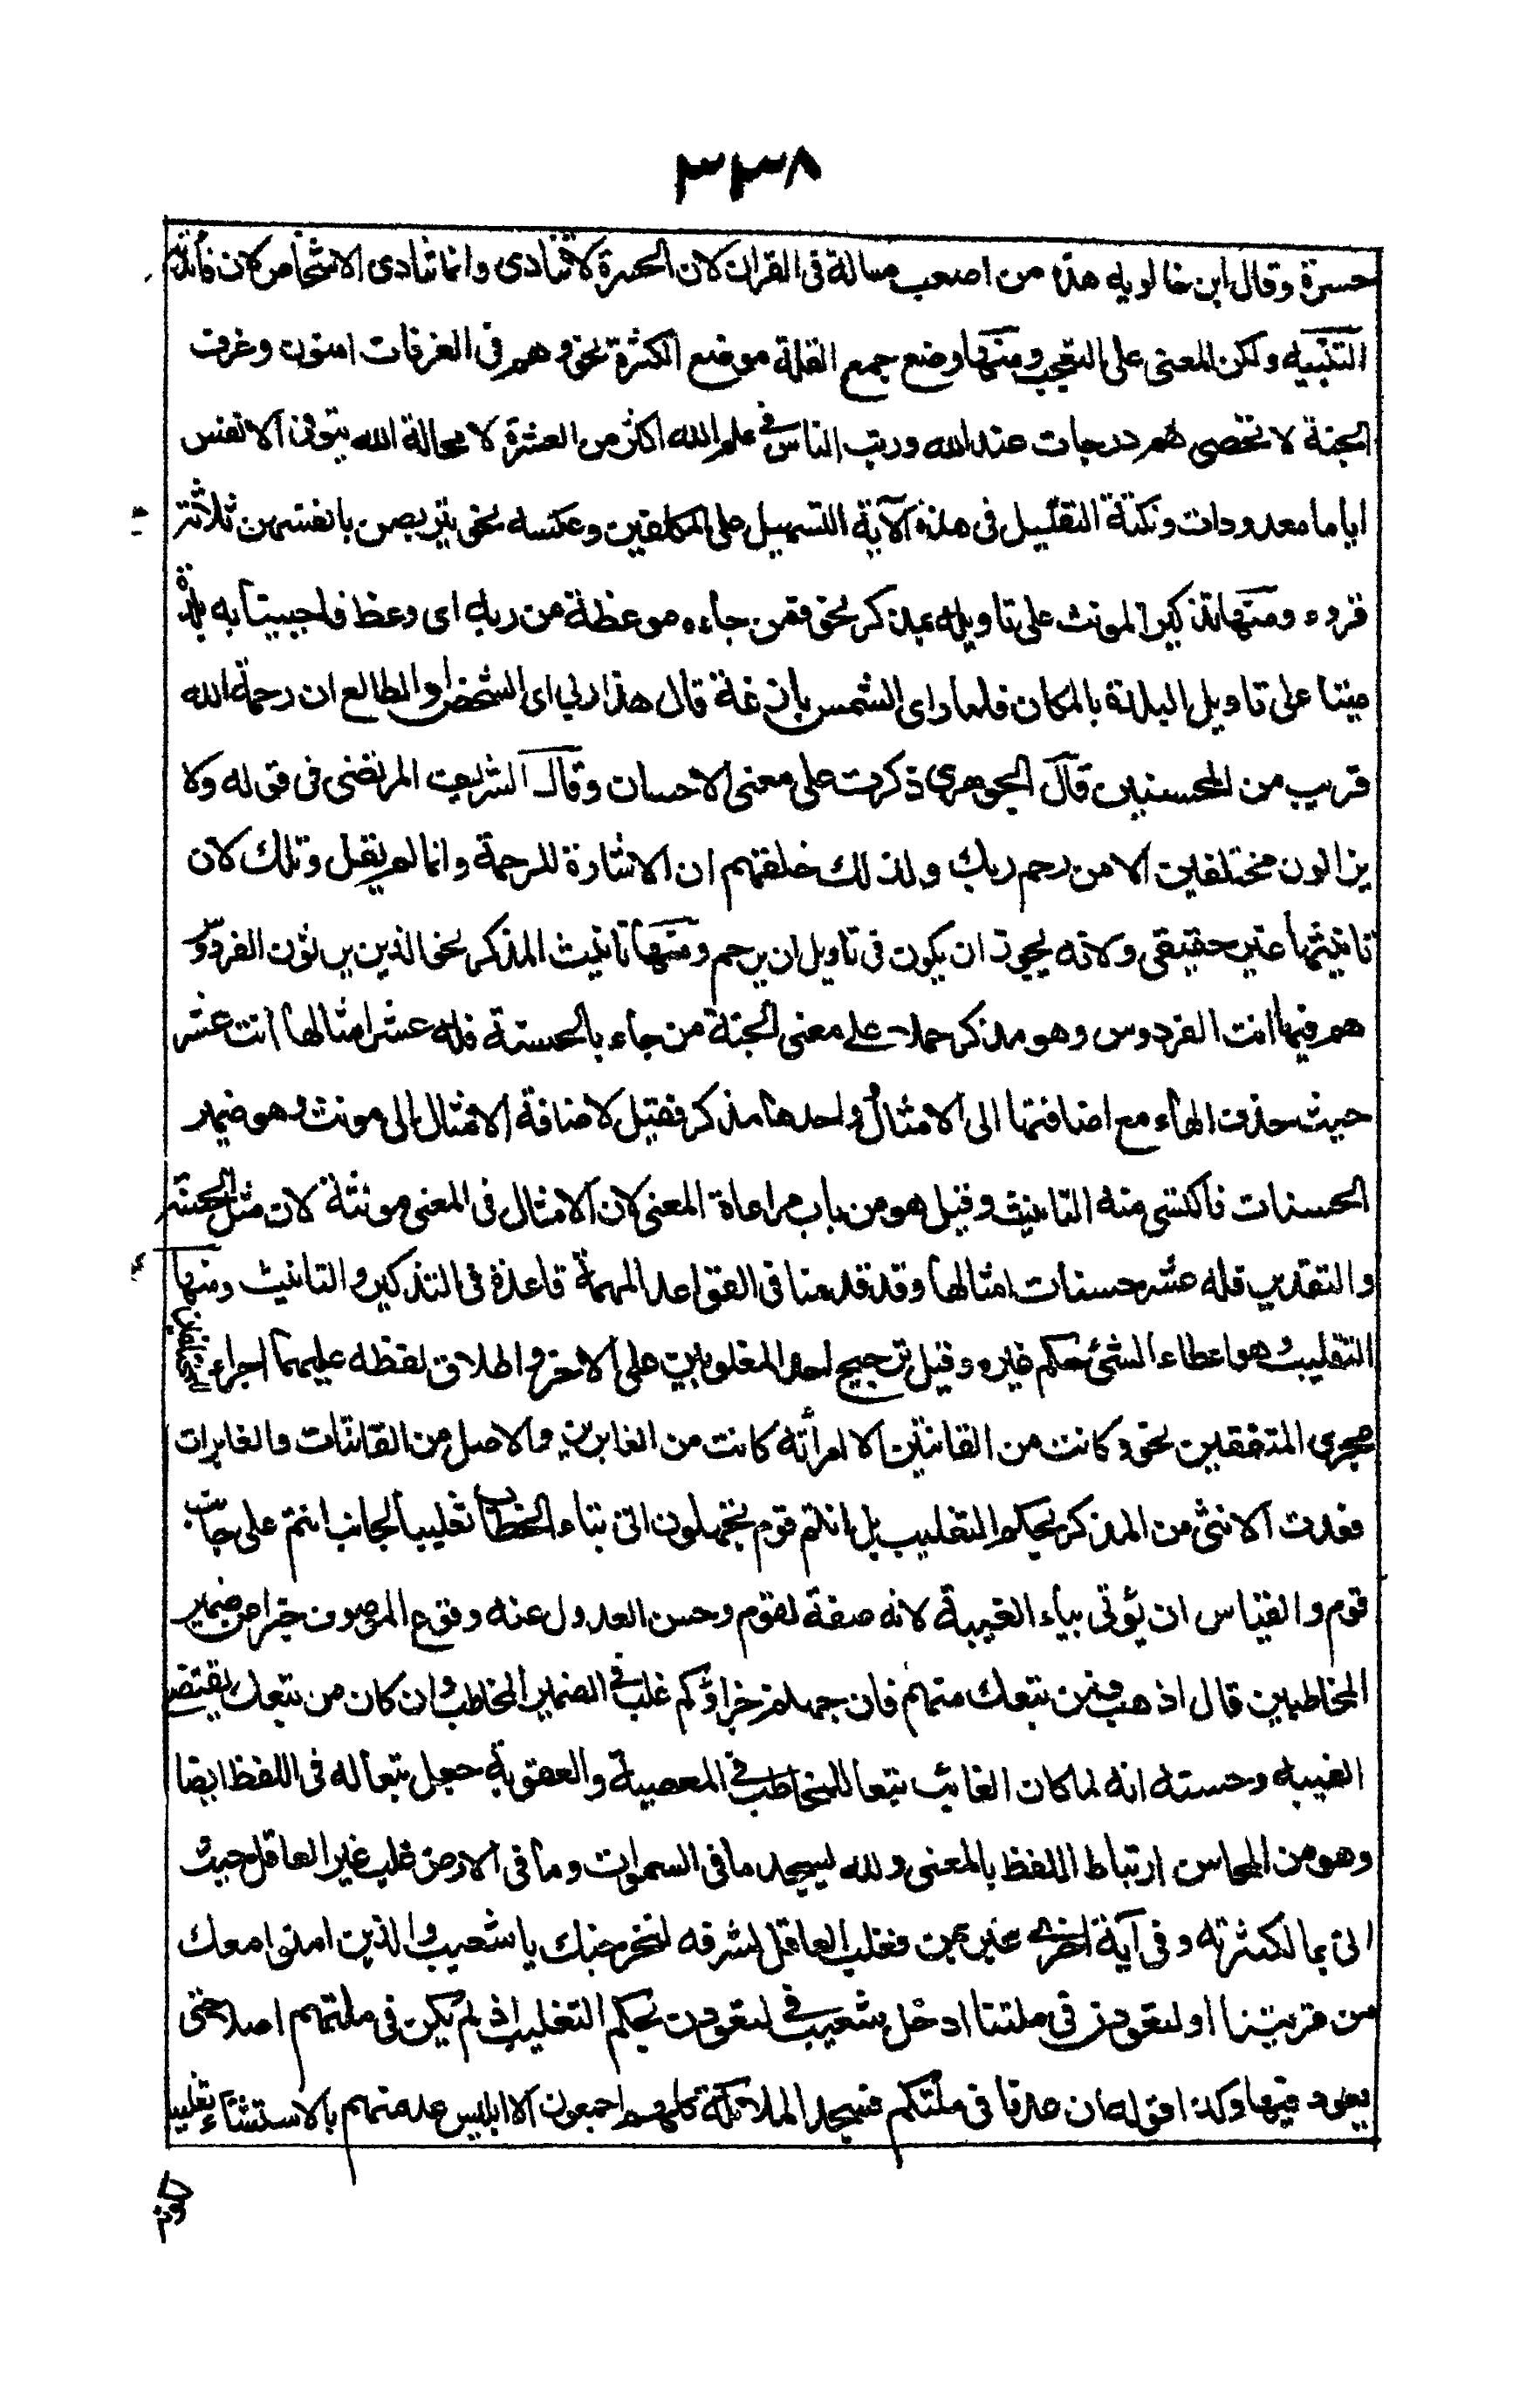 ٣٣٨
حسرة وقال ابن خالويه هذه من اصعب مسالة فى القران لان الحسرة لا تنادى وانما تنادى الاشخاص لان فائدته
التنبيه ولكن المعنى على التعجب ومنها وضع جمع القلة موضع الكثرة نحو وهم فى الغرفات امنون وغرف
الجنة لا تحصى هم درجات عند الله ورتب الناس فى علم الله اكثر من العشرة لا محالة الله يتوفى الانفس
اياما معدودات ونكتة التقليل فى هذه الآية التسهيل على المكلفين وعكسه نحو يتربصن بانفسهن ثلاثة
قروء ومنها تذكير المونث على تاويله بمذكر نحو فمن جاءه موعظة من ربه اى وعظ فاحيينا به بلدة
ميتا على تاويل البلدة بالمكان فلما راى الشمس بازغة قال هذا ربي اى الشخص او الطالع ان رحمة الله
قريب من المحسنين قال الجوهرى ذكرت على معنى الاحسان وقال الشريف المرتضى فى قوله ولا
يزالون مختلفين الا من رحم ربك ولذلك خلقهم ان الاشارة للرحمة وانما لم يقل وتلك لان
تانيثها غير حقيقى ولانه يجوز ان يكون فى تاويل ان يرحم ومنها تانيث المذكر نحو الذين يرثون الفردوس
هم فيها انث الفردوس وهو مذكر حملا على معنى الجنة من جاء بالحسنة فله عشر امثالها انث عشر
حيث حذف الهاء مع اضافتها الى الامثال واحدها مذكر فقيل لاضافة الامثال الى مونث وهو ضمير
الحسنات فاكتسى منه التانيث وقيل هو من باب مراعاة المعنى لان الامثال فى المعنى مونثة لان مثل الحسنة
والتقدير فله عشر حسنات امثالها وقد قدمنا فى القواعد المهمة قاعدة فى التذكير والتانيث ومنها
التغليب وهو اعطاء الشئ حكم غيره وقيل ترجيح احد المغلوبين على الاخر واطلاق لفظه عليهما اجراء للمختلفين
مجرى المتفقين نحو وكانت من القانتين الا امرأته كانت من الغابرين والاصل من القانتات والغابرات
فعدت الانثى من المذكر بحكم التغليب بل انتم قوم تجهلون اتى بتاء الخطاب تغليبا لجانب انتم على جانب
قوم والقياس ان يؤتى بياء الغيبة لانه صفة لقوم وحسن العدول عنه وقوع الموصوف خبرا عن ضمير
المخاطبين قال اذهب فمن تبعك منهم فان جهنم جزاؤكم غلب فى الضمير المخاطب وان كان من تبعك يقتضى
الغيبه وحسنه انه لما كان الغائب تبعا للمخاطب فى المعصية والعقوبة جعل تبعا له فى اللفظ ايضا
وهو من المحاسن ارتباط اللفظ بالمعنى ولله يسجد ما فى السموات وما فى الارض غلب غير العاقل حيث
اتى بما لكثرته وفى آية اخرى عبر بمن فغلب العاقل لشرفه لنخرجنك يا شعيب والذين امنوا معك
من قريتنا او لتعودن فى ملتنا ادخل شعيب فى لتعودن بحكم التغليب اذ لم يكن فى ملتهم اصلا حتى
يعود فيها وكذا قوله ان عدنا فى ملتكم فسجد الملائكة كلهم اجمعون الا ابليس عد منهم بالاستثناء تغليبا